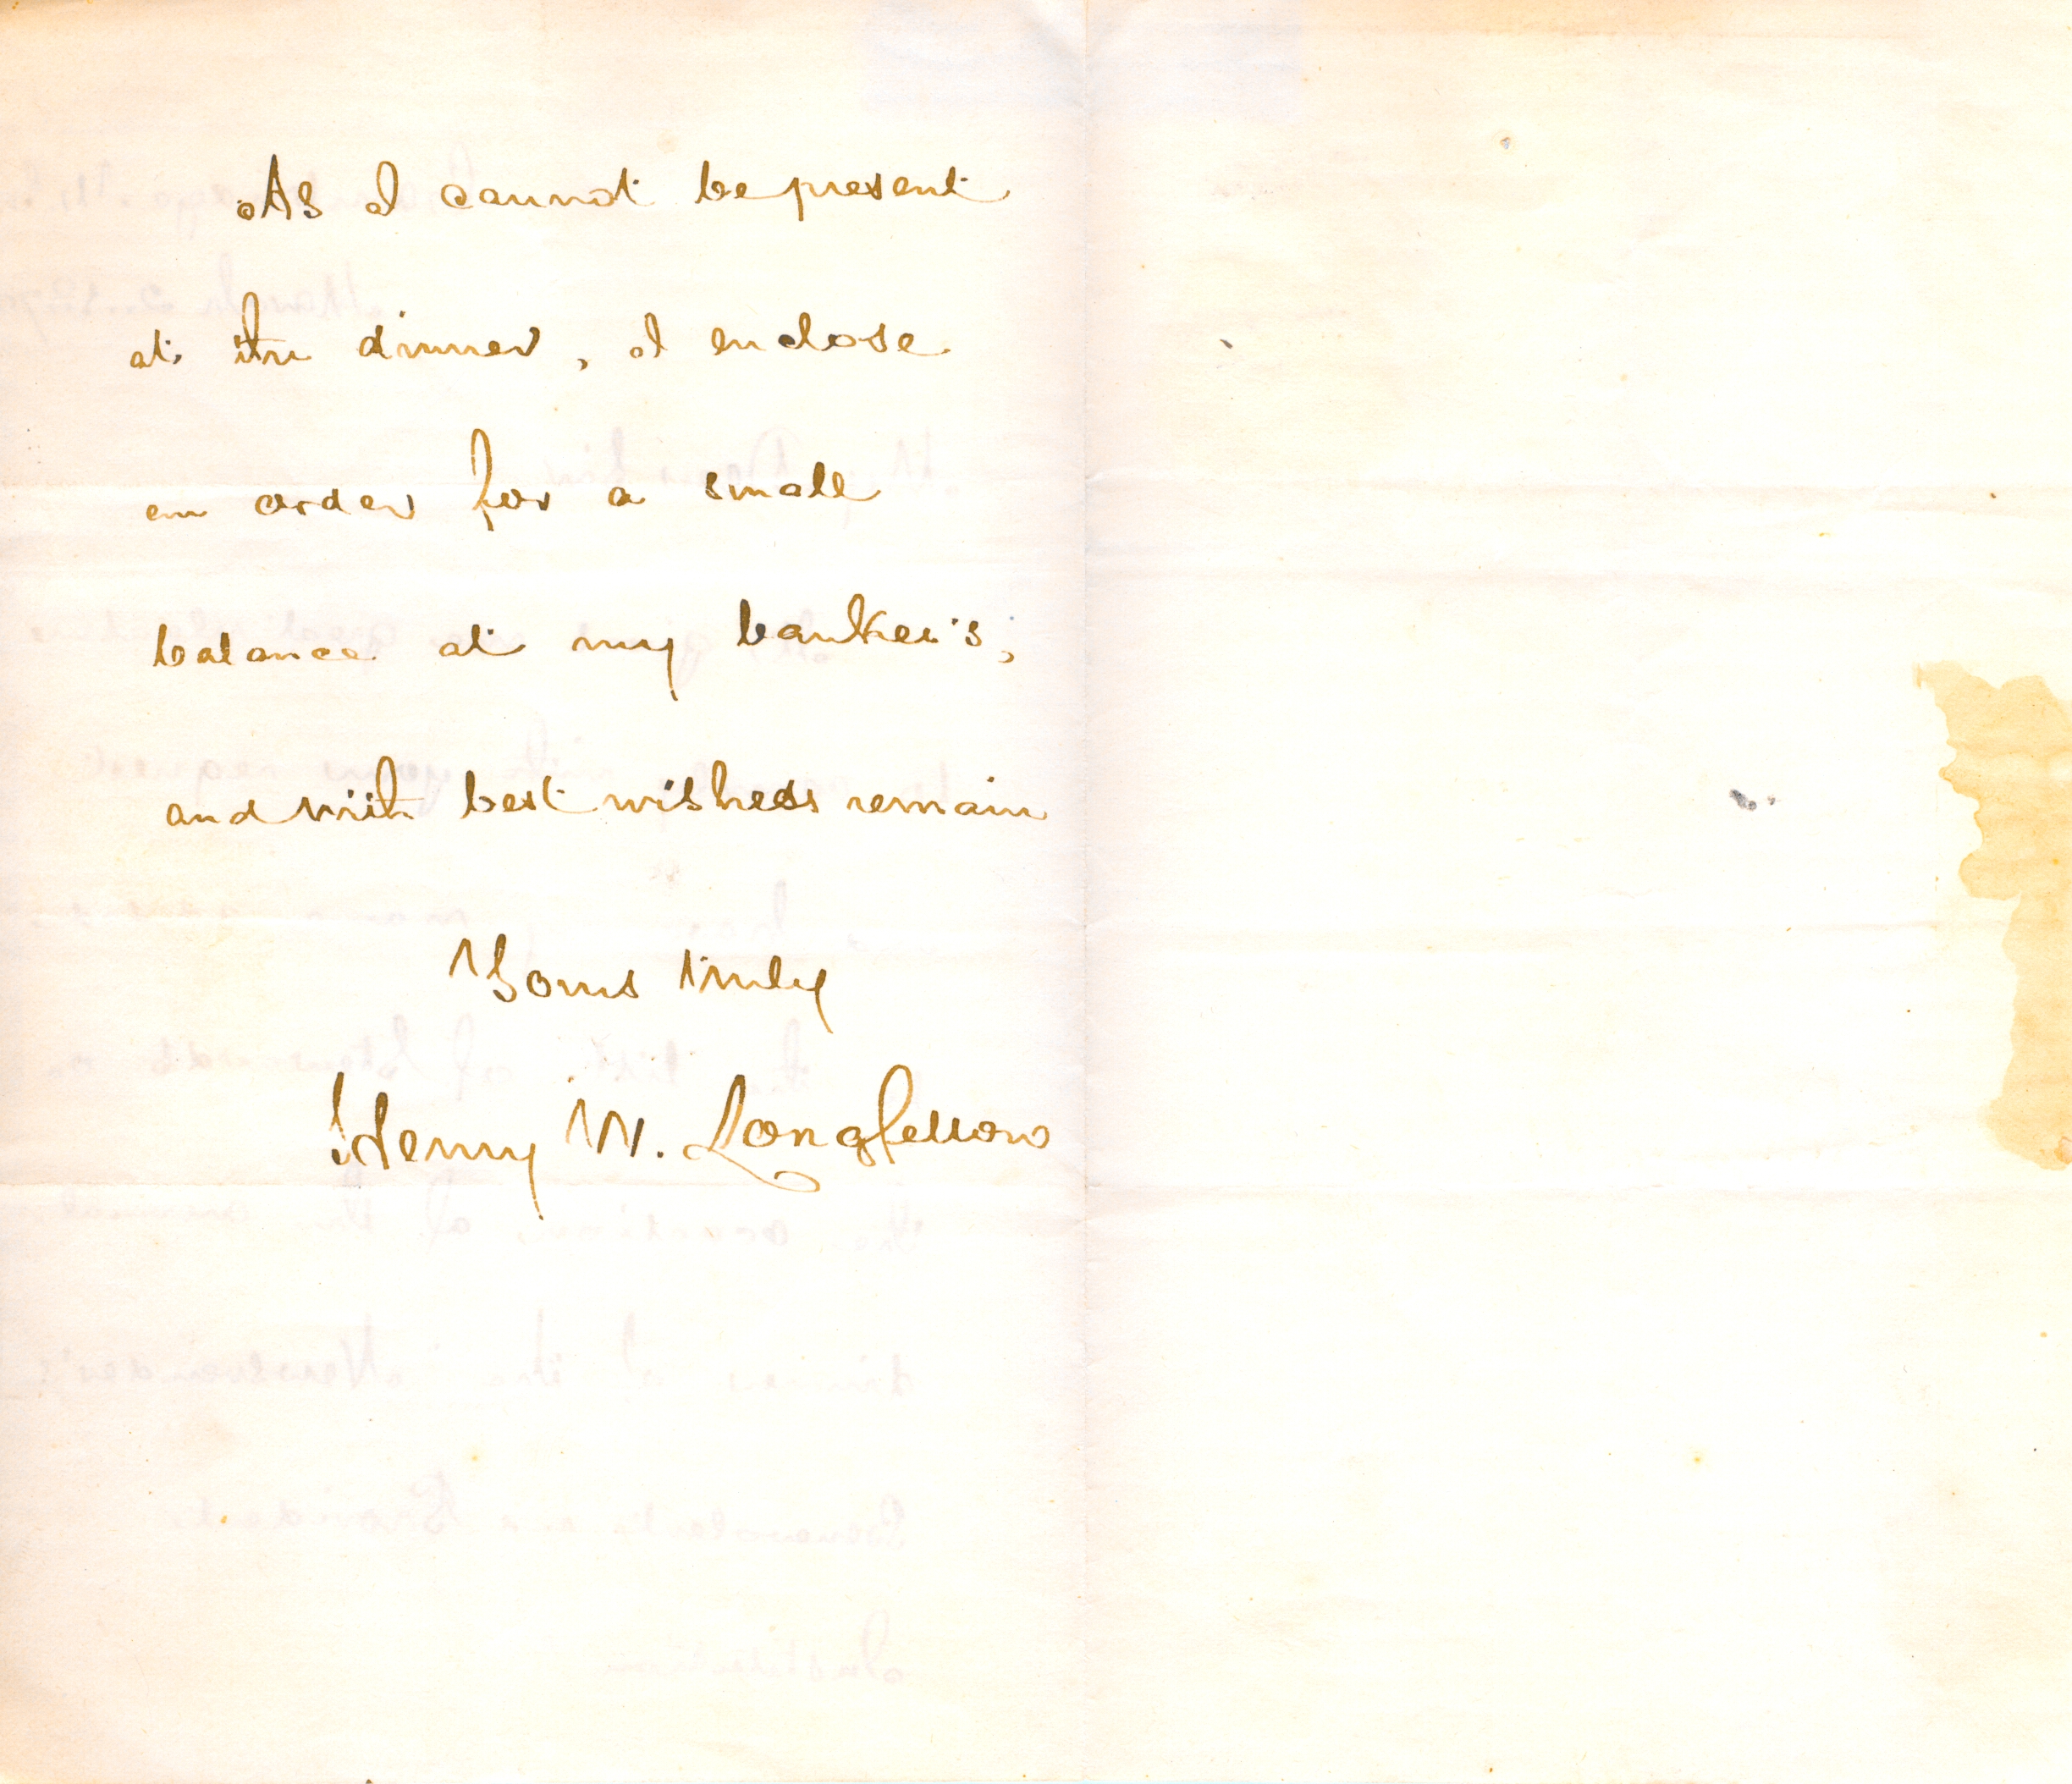 As I cannot be present
at the dinner, I enclose
an order for a small
balance at my banker's,
and with best wishes remain
Yours truly
Henry W. Longfellow